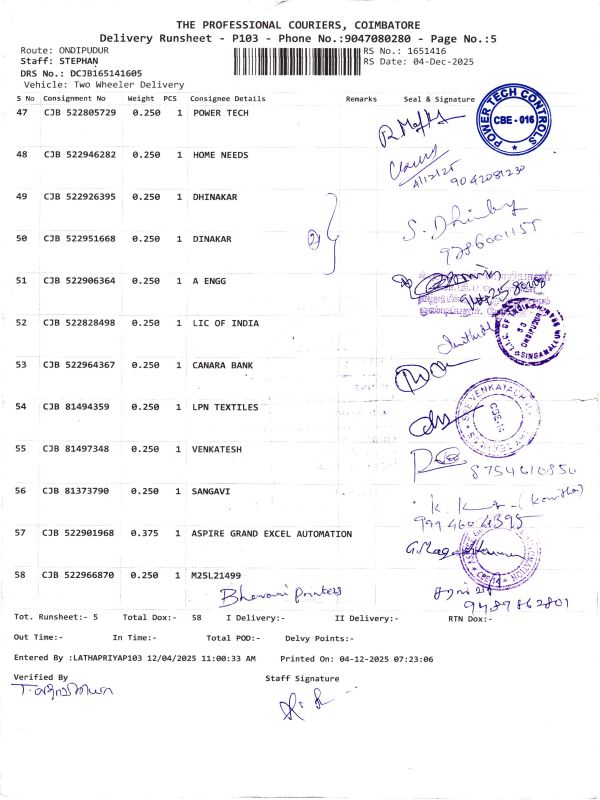 THE PROFESSIONAL COURIERS, COIMBATORE
Delivery Runsheet - P103 - Phone No.:9047080280 - Page No.:5
Route: ONDIPUDUR RS No.: 1651416
Staff: STEPHAN RS Date: 04-Dec-2025
DRS No.: DCJB165141605
Vehicle: Two Wheeler Delivery
S No Consignment No Weight PCS Consignee Details Remarks Seal & Signature
47 CJB 522805729 0.250 1 POWER TECH
POWER TECH CONTROLS
CBE - 016
48 CJB 522946282 0.250 1 HOME NEEDS
4/12/25
9042081230
49 CJB 522926395 0.250 1 DHINAKAR
50 CJB 522951668 0.250 1 DINAKAR
(2)
9786001155
51 CJB 522906364 0.250 1 A ENGG
52 CJB 522828498 0.250 1 LIC OF INDIA
53 CJB 522964367 0.250 1 CANARA BANK
54 CJB 81494359 0.250 1 LPN TEXTILES
55 CJB 81497348 0.250 1 VENKATESH
8754610850
56 CJB 81373790 0.250 1 SANGAVI
9994604395
57 CJB 522901968 0.375 1 ASPIRE GRAND EXCEL AUTOMATION
58 CJB 522966870 0.250 1 M25L21499
Bhavani printers
9487862801
Tot. Runsheet:- 5 Total Dox:- 58 I Delivery:- II Delivery:- RTN Dox:-
Out Time:- In Time:- Total POD:- Delvy Points:-
Entered By :LATHAPRIYAP103 12/04/2025 11:00:33 AM Printed On: 04-12-2025 07:23:06
Verified By Staff Signature